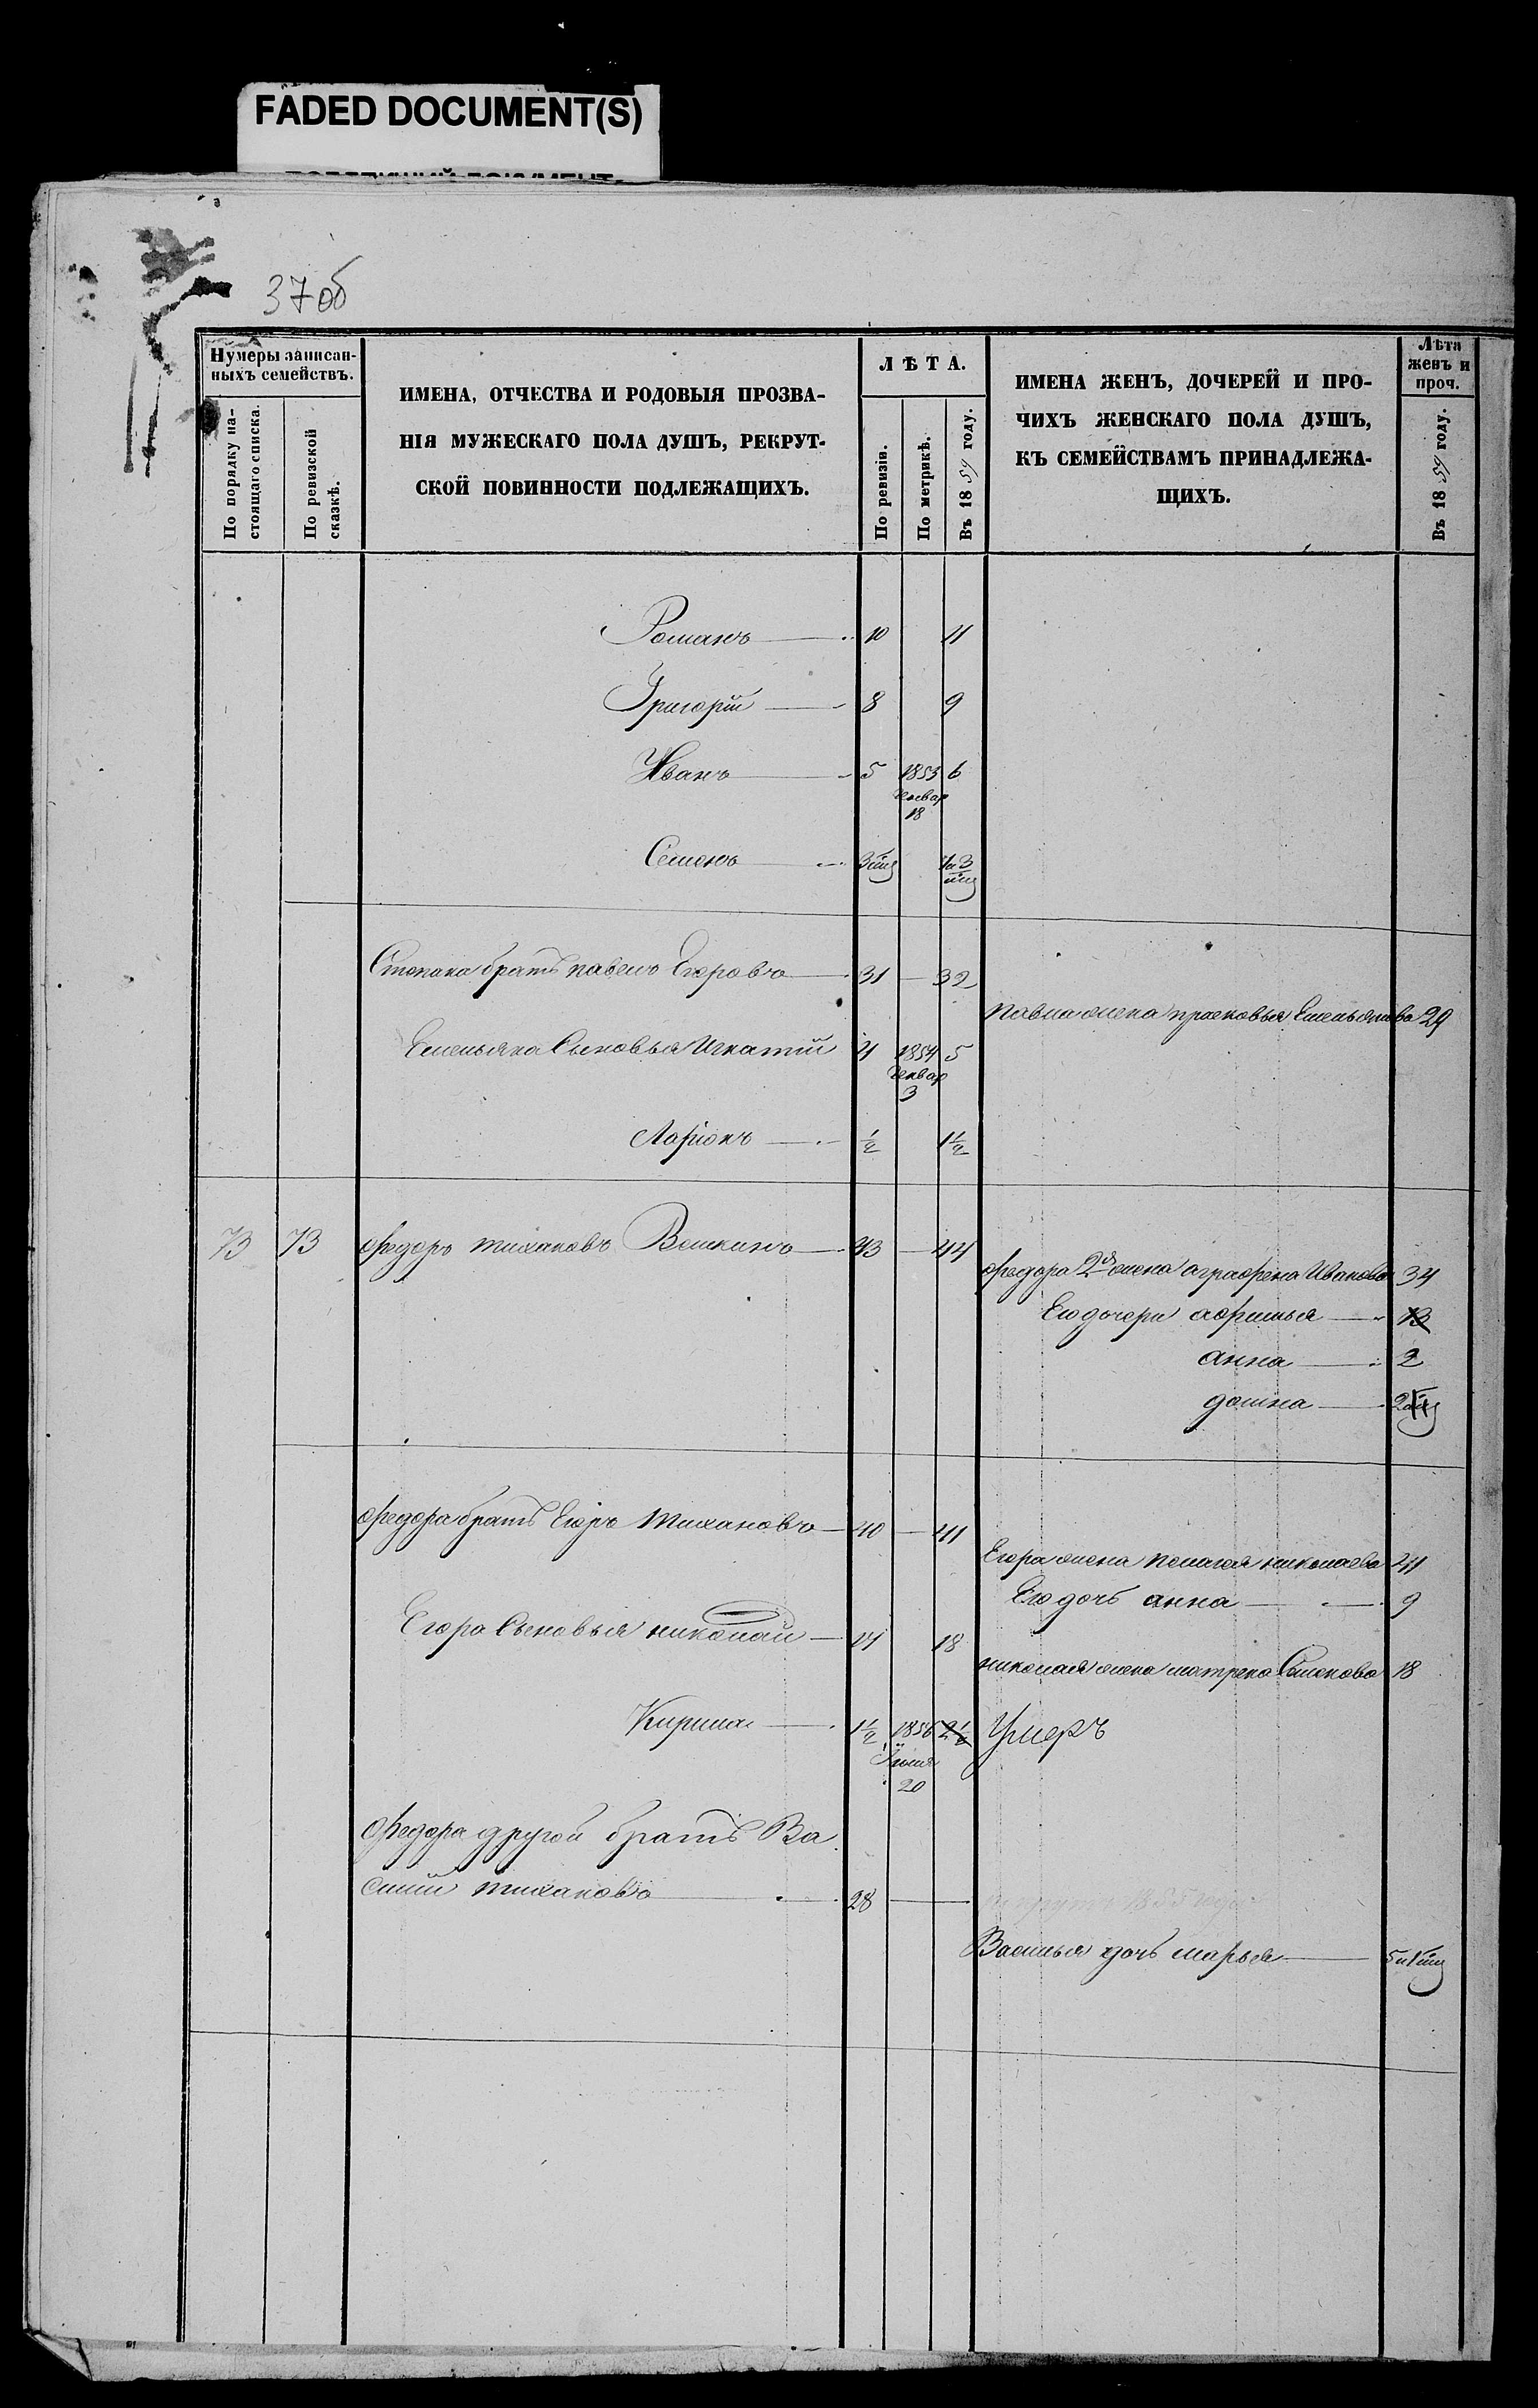 FADED DOCUMENT(S)
37 об
Нумеры записан-
ныхъ семействъ.
По порядку на-
стоящаго списка.
По ревизской
сказкѣ.
ИМЕНА, ОТЧЕСТВА И РОДОВЫЯ ПРОЗВА-
НІЯ МУЖЕСКАГО ПОЛА ДУШЪ, РЕКРУТ-
СКОЙ ПОВИННОСТИ ПОДЛЕЖАЩИХЪ.
ЛѢТА.
По ревизіи.
По метрикѣ.
Въ 1859 году.
ИМЕНА ЖЕНЪ, ДОЧЕРЕЙ И ПРО-
ЧИХЪ ЖЕНСКАГО ПОЛА ДУШЪ,
КЪ СЕМЕЙСТВАМЪ ПРИНАДЛЕЖА-
ЩИХЪ.
Лѣта
женъ и
проч.
Въ 1859 году.
Романъ 10 11
Григорій 8 9
Иванъ 5 1853 6
Январ
18
Семенъ 3 мц 1 и 3
мц
Степана братъ павелъ Егоровъ 31 — 32
павла жена прасковья Емельянова 29
Емельяна Сыновья Игнатій 4 1854 5
Январ
3
Ларіонъ ½ 1½
73 73 Федоръ тихановъ 43 — 44
Федора 2я жена аграфена Иванова 34
Ево дочери афимья 13
анна 2
домна 2 мц
Федора братъ Егоръ тихановъ 40 — 41
Егора жена пелагея николаева 41
Ево дочь анна 9
Егора Сыновья николай 17 18
николая жена матрена Семенова 18
Кирила 1½ 1856 2½ Умеръ
Июня
20
Федора другой братъ Ва
силий тихановъ 28 — 1855 года
Василья дочь марья 5 и 1 мц